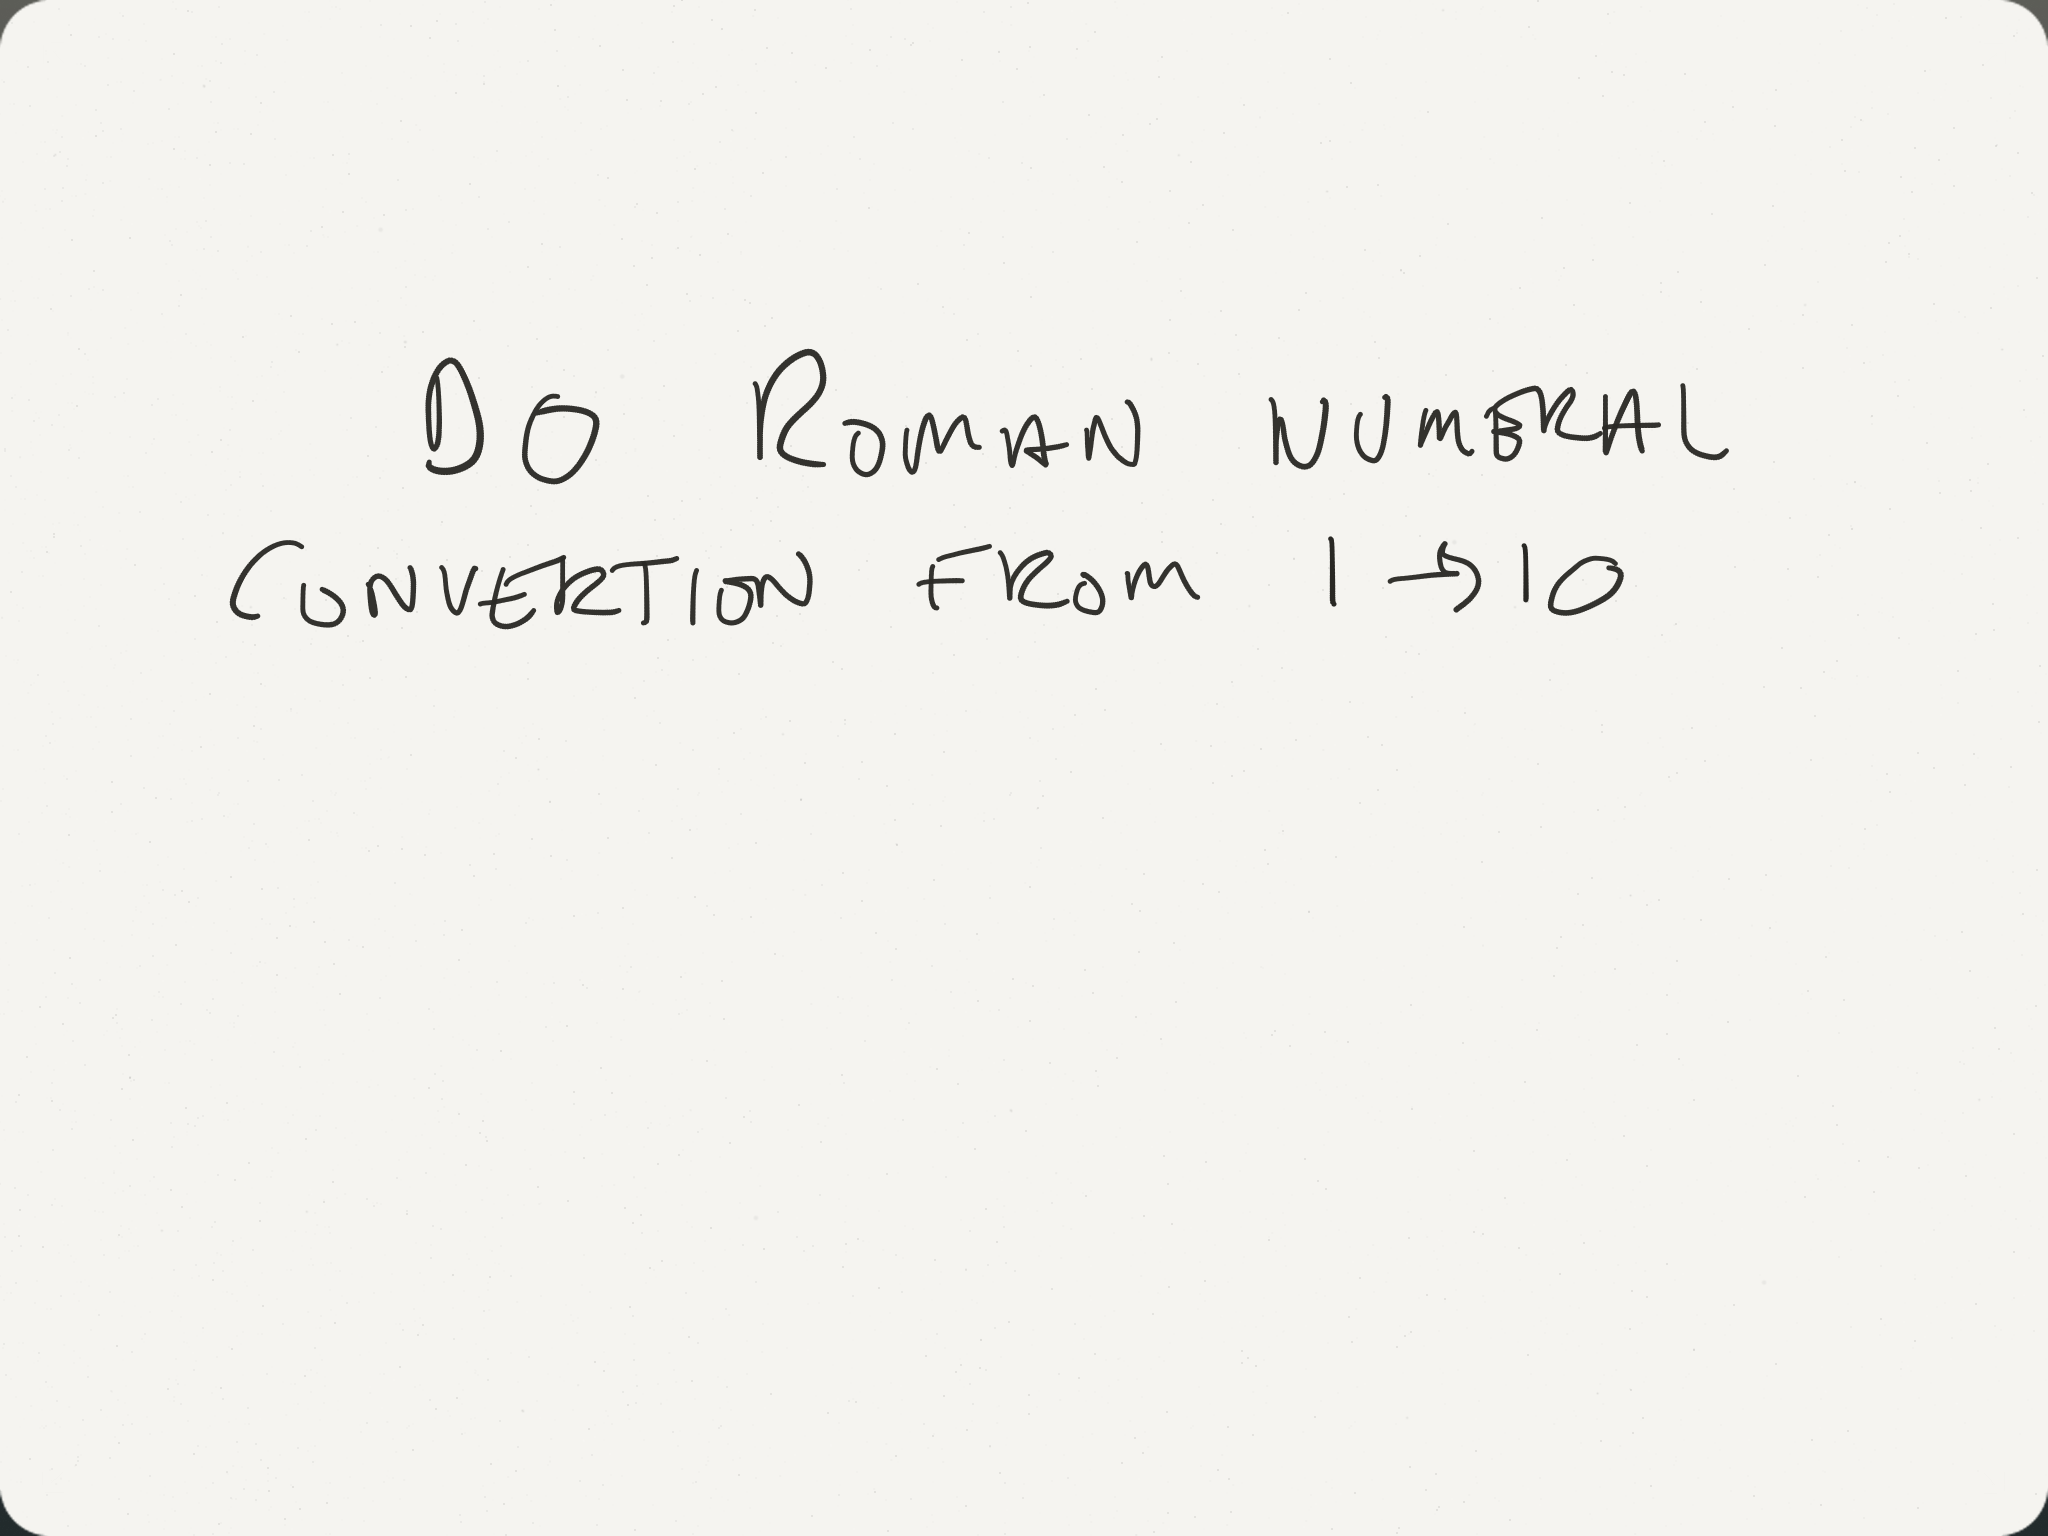 DO ROMAN NUMERAL
CONVERTION FROM 1 → 10